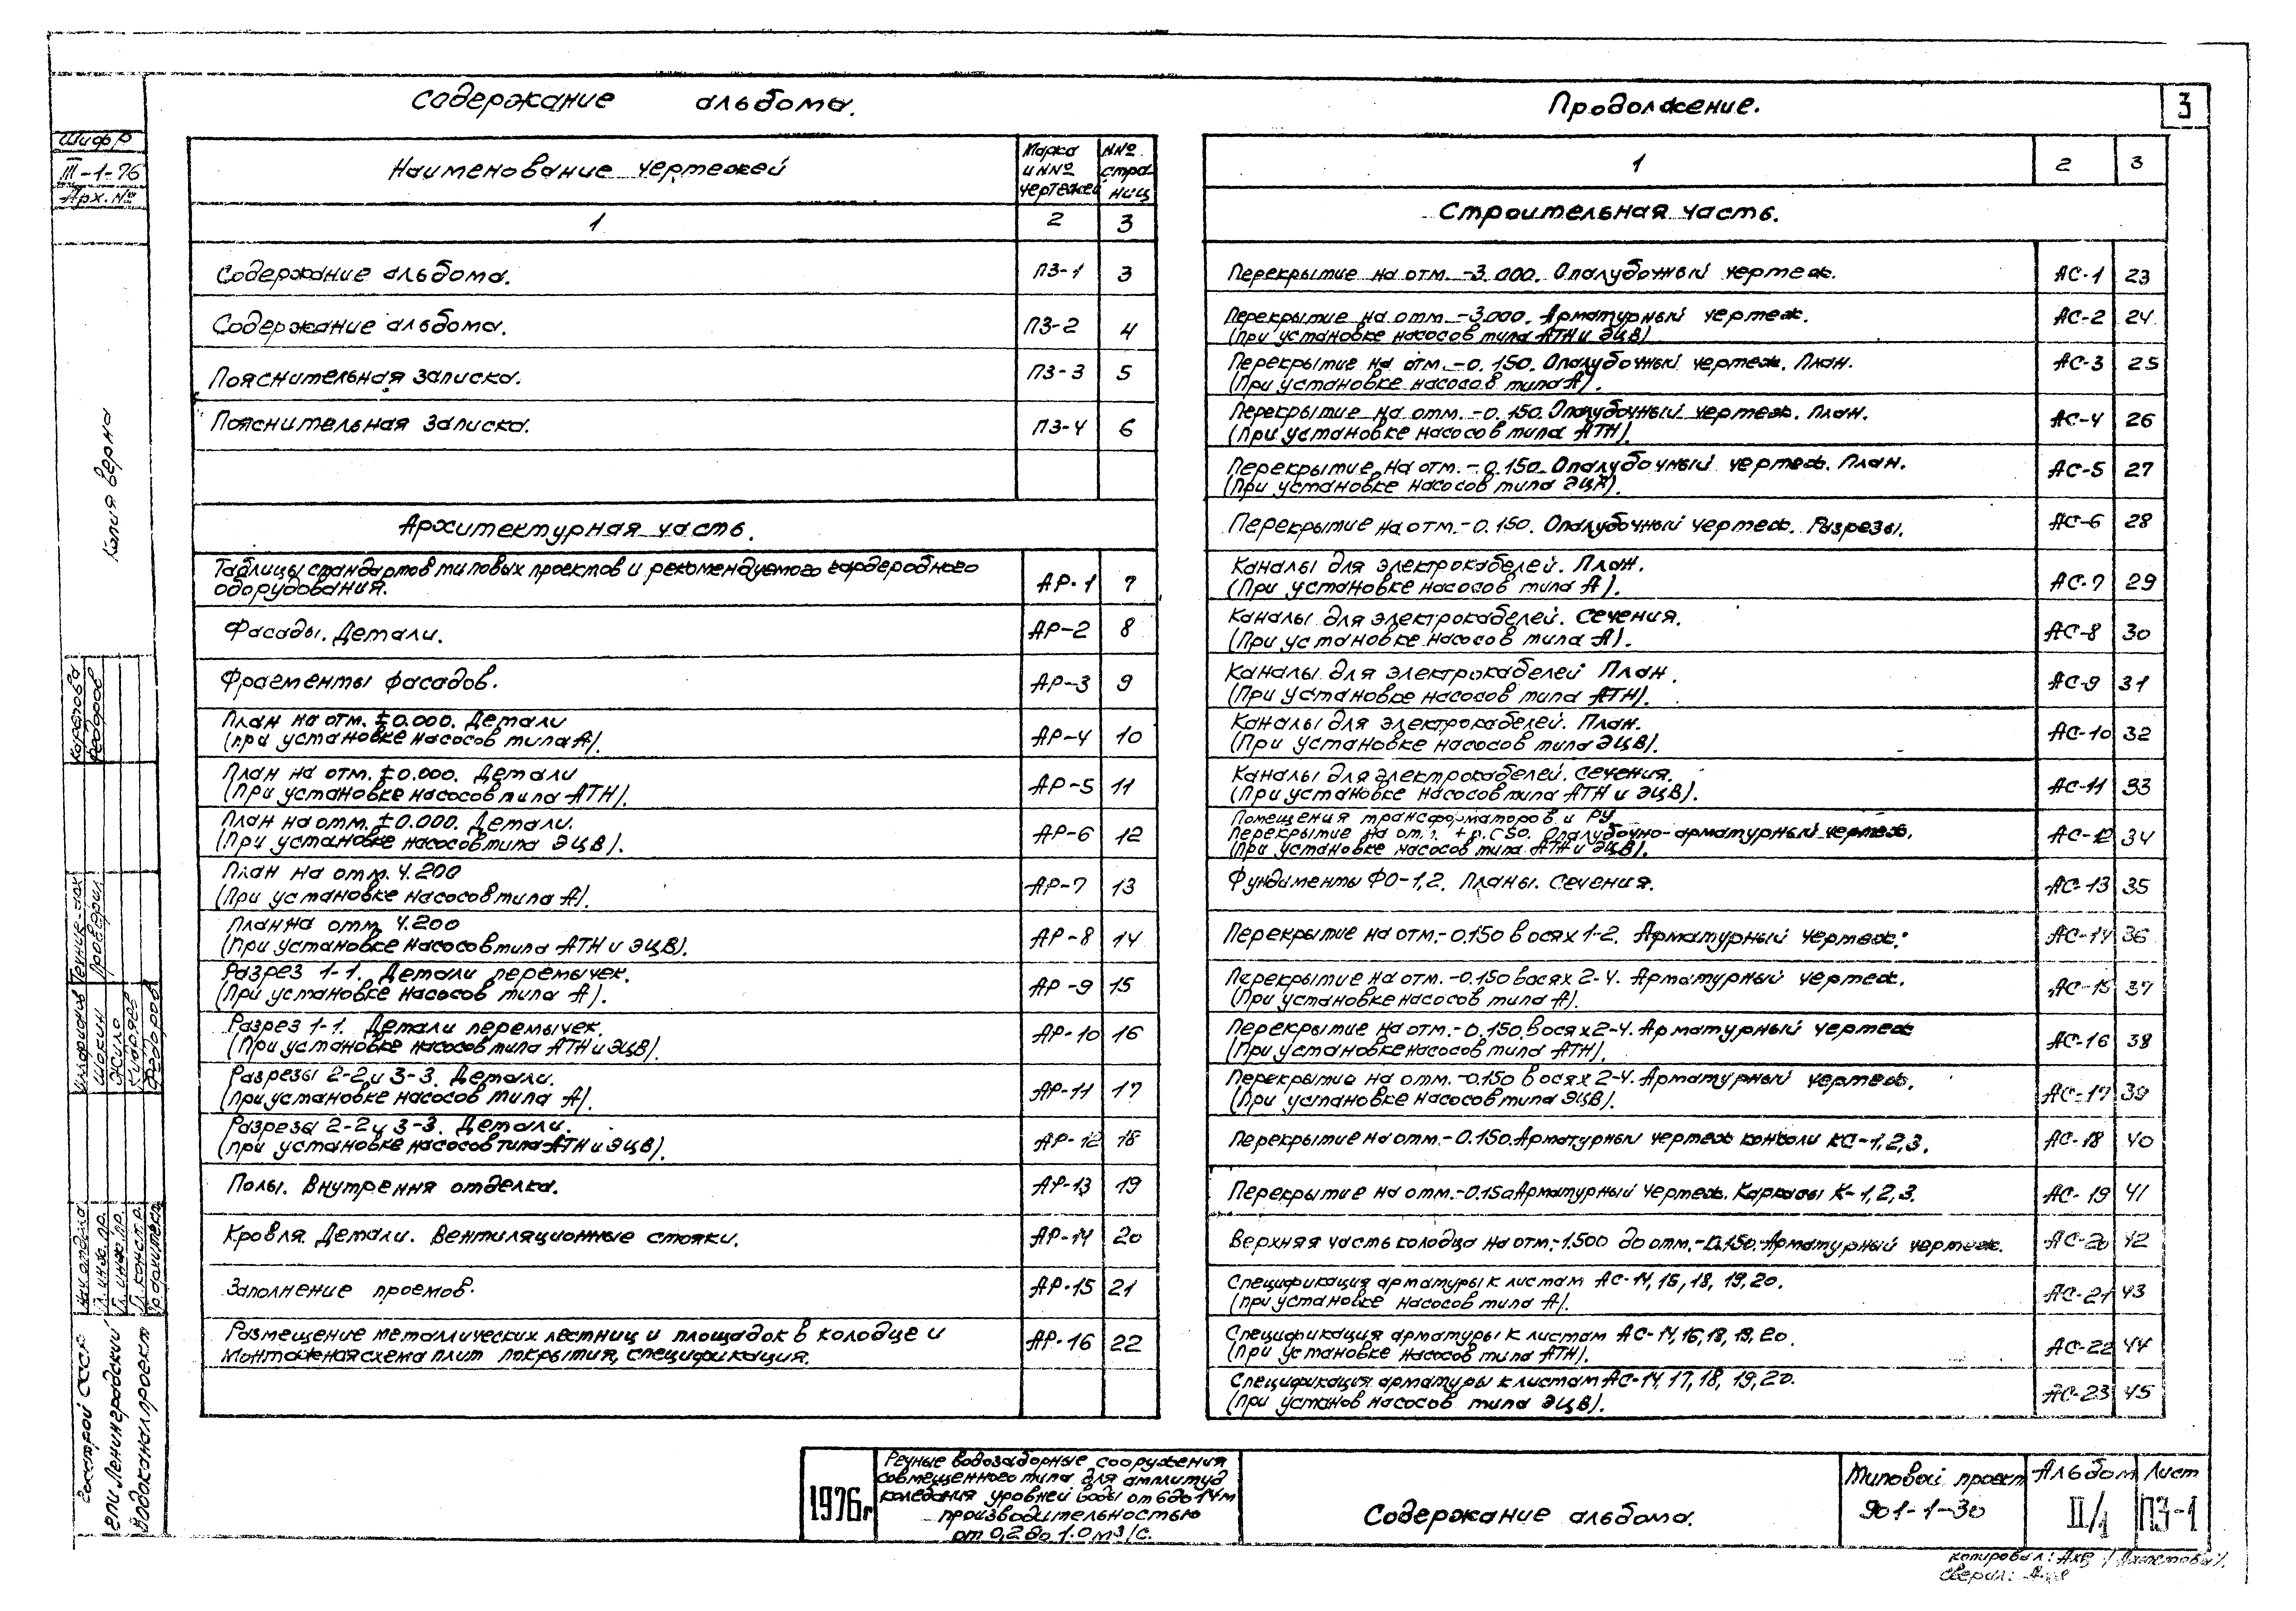 Содержание альбома.
Продолжение.
3
Шифр
III-1-76
Арх. №
Копия верна
Наименование чертежей
Марка и №№ чертежей
№№ страниц
1 2 3
Содержание альбома. ПЗ-1 3
Содержание альбома. ПЗ-2 4
Пояснительная записка. ПЗ-3 5
Пояснительная записка. ПЗ-4 6
Архитектурная часть.
Таблицы стандартов типовых проектов и рекомендуемого гардеробного
оборудования. АР-1 7
Фасады. Детали. АР-2 8
Фрагменты фасадов. АР-3 9
План на отм. ±0.000. Детали
(при установке насосов типа А). АР-4 10
План на отм. ±0.000. Детали
(При установке насосов типа АТН). АР-5 11
План на отм. ±0.000. Детали.
(При установке насосов типа ЭЦВ). АР-6 12
План на отм. 4.200
(При установке насосов типа А). АР-7 13
План на отм. 4.200
(При установке насосов типа АТН и ЭЦВ). АР-8 14
Разрез 1-1. Детали перемычек.
(При установке насосов типа А). АР-9 15
Разрез 1-1. Детали перемычек.
(При установке насосов типа АТН и ЭЦВ). АР-10 16
Разрезы 2-2 и 3-3. Детали.
(При установке насосов типа А). АР-11 17
Разрезы 2-2 и 3-3. Детали.
(при установке насосов типа АТН и ЭЦВ). АР-12 18
Полы. Внутрення отделка. АР-13 19
Кровля. Детали. Вентиляционные стояки. АР-14 20
Заполнение проемов. АР-15 21
Размещение металлических лестниц и площадок в колодце и
монтажная схема плит покрытия, спецификация. АР-16 22
1 2 3
Строительная часть.
Перекрытие на отм. -3.000. Опалубочный чертеж. АС-1 23
Перекрытие на отм. -3.000. Арматурный чертеж.
(При установке насосов типа АТН и ЭЦВ) АС-2 24
Перекрытие на отм. -0.150. Опалубочный чертеж. План.
(При установке насосов типа А). АС-3 25
Перекрытие на отм. -0.150. Опалубочный чертеж. План.
(При установке насосов типа АТН). АС-4 26
Перекрытие на отм. -0.150. Опалубочный чертеж. План.
(При установке насосов типа ЭЦВ). АС-5 27
Перекрытие на отм. -0.150. Опалубочный чертеж. Разрезы. АС-6 28
Каналы для электрокабелей. План.
(При установке насосов типа А). АС-7 29
Каналы для электрокабелей. Сечения.
(При установке насосов типа А). АС-8 30
Каналы для электрокабелей План.
(При установке насосов типа АТН). АС-9 31
Каналы для электрокабелей. План.
(При установке насосов типа ЭЦВ). АС-10 32
Каналы для электрокабелей. Сечения.
(При установке насосов типа АТН и ЭЦВ). АС-11 33
Помещения трансформаторов и РУ
Перекрытие на отм. Опалубочно-арматурный чертеж.
(При установке насосов типа АТН и ЭЦВ). АС-12 34
Фундименты ФО-1,2. Планы. Сечения. АС-13 35
Перекрытие на отм. -0.150 в осях 1-2. Арматурный чертеж. АС-14 36
Перекрытие на отм. -0.150 в осях 2-4. Арматурный чертеж.
(При установке насосов типа А). АС-15 37
Перекрытие на отм. -0.150 в осях 2-4. Арматурный чертеж
(При установке насосов типа АТН). АС-16 38
Перекрытие на отм. -0.150 в осях 2-4. Арматурный чертеж.
(При установке насосов типа ЭЦВ). АС-17 39
Перекрытие на отм. -0.150. Арматурный чертеж консоли КС-1,2,3. АС-18 40
Перекрытие на отм. -0.150 Арматурный чертеж. Каркасы К-1,2,3. АС-19 41
Верхняя часть колодца на отм. -1.500 до отм. -0.150. Арматурный чертеж. АС-20 42
Спецификация арматуры к листам АС-14, 15, 18, 19, 20.
(при установке насосов типа А). АС-21 43
Спецификация арматуры к листам АС-14, 16, 18, 19, 20.
(При установке насосов типа АТН). АС-22 44
Спецификация арматуры к листам АС-14, 17, 18, 19, 20.
(При установ насосов типа ЭЦВ). АС-23 45
Проверил
Шокин
Федоров
Нач. отдела
Гл. инж. пр.
Гл. инж. пр.
Гл. констр.
Госстрой СССР
ГПИ Ленинградский
Водоканалпроект
1976г
Речные водозаборные сооружения
совмещенного типа для амплитуд
коледания уровней воды от 6 до 14 м
производительностью
от 0,2 до 1.0 м³/с.
Содержание альбома.
Типовой проект
901-1-30
Альбом
II/1
Лист
ПЗ-1
копировал:
сверил: